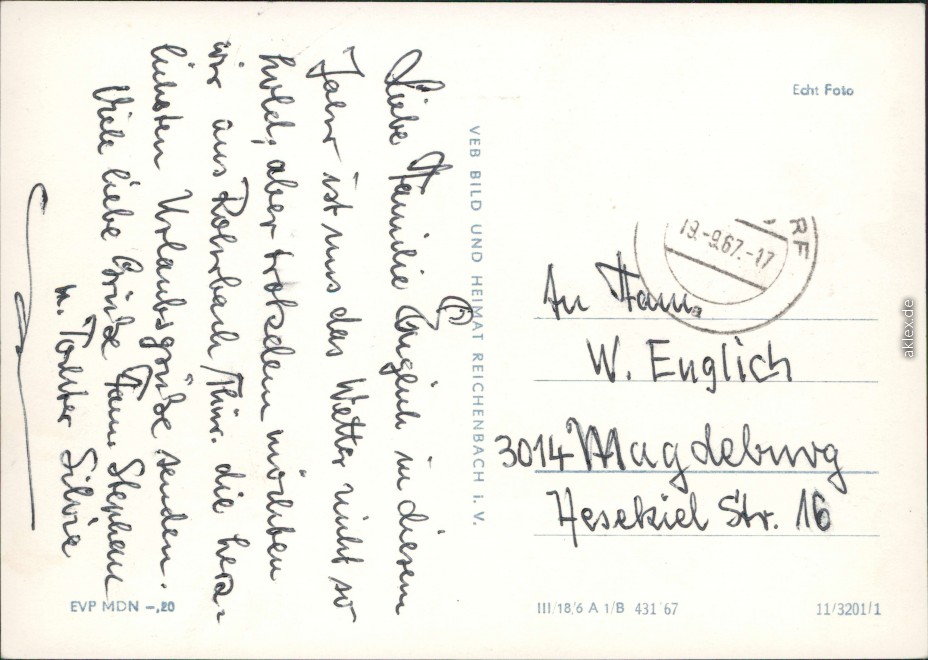 Liebe Familie Englich in diesem
Jahr ist uns das Wetter nicht so
hold, aber trotzdem möchten
wir aus Rohrbach/Thür. die herz=
lichsten Urlaubsgrüße senden.
Viele liebe Grüße Fam. Stephan
u. Tochter Silvia
VEB BILD UND HEIMAT REICHENBACH i. V.
Echt Foto
19.-9.67.-17
RF
An Fam.
W. Englich
3014 Magdeburg
Hesekiel Str. 16
EVP MDN –,20
III/18/6 A 1/B 431 67
11/3201/1
aklex.de